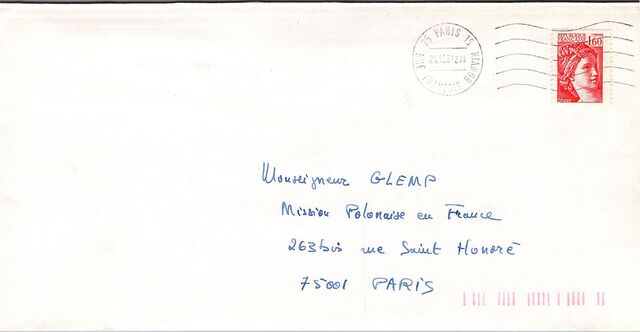 75 PARIS 15
RUE FRANÇOIS BONVIN
REPUBLIQUE
FRANÇAISE
1,60
Monseigneur GLEMP
Mission Polonaise en France
263bis rue Saint Honoré
75001 PARIS